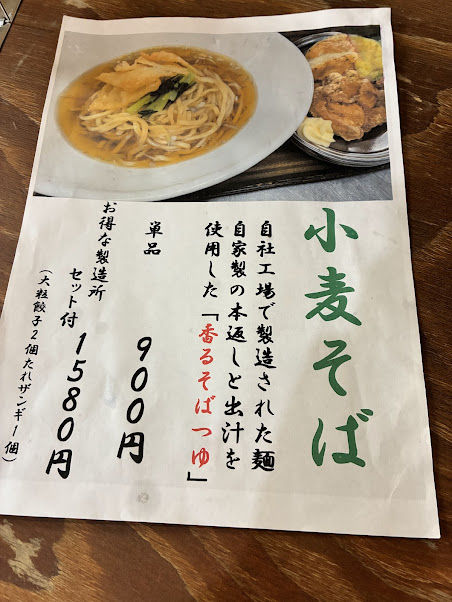 小麦そば
自社工場で製造された麺
自家製の本返しと出汁を
使用した「香るそばつゆ」
単品 900円
お得な製造所
セット付 1580円
(大粒餃子2個たれザンギ1個)